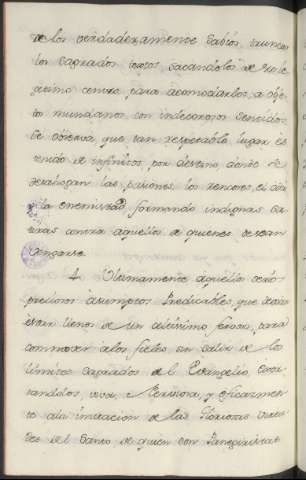 de los verdaderamente Sabios, truncan
los Sagrados textos, sacandolos de su le
gitimo centro para acomodarlos, a obje
tos mundanos con indecorosos Sentidos.
Se observa, que tan respetable lugar es
tenido de infinitos por destino donde se
desahogan las pasiones, los rencores, el odio
y la enemistad, formando indignas Sa
tiras contra aquellos de quienes desean
vengarse.
4. Ultimamente aquellos
preciosos asumptos Predicables, que
estar llenos de un Santisimo fervor, para
conmover a los fieles sin salir de los
limites sagrados del Evangelio, exor
tandolos, viva, y eficazmen
te a la imitacion de las Gloriosas virtu
des del Santo, de quien con